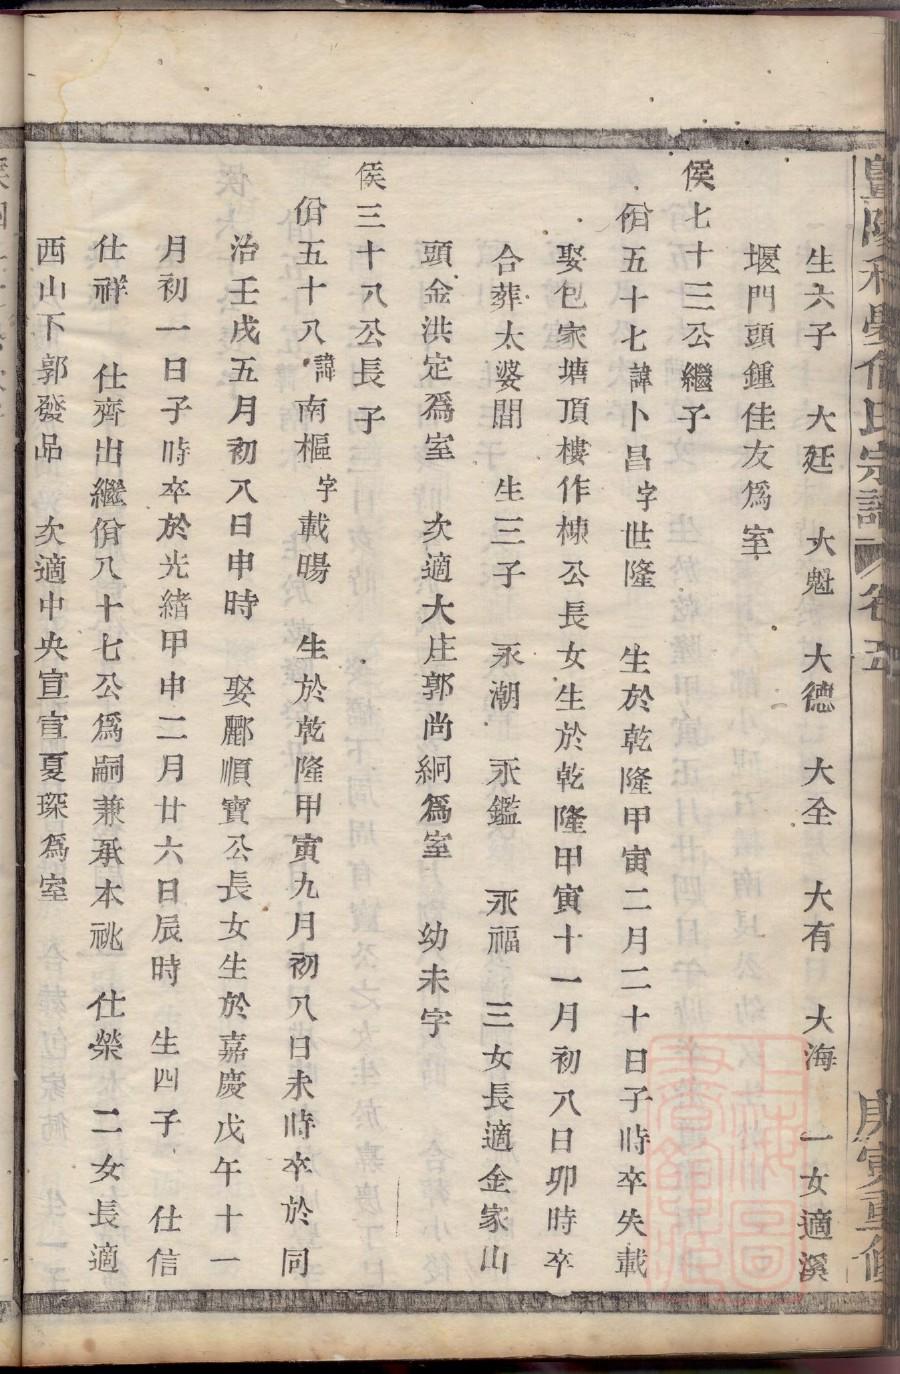 生六子　大廷　大魁　大德　大全　大有　大海　一女適溪
堰門頭鍾佳友爲室
侯七十三公繼子
佾五十七諱卜昌字世隆　生於乾隆甲寅二月二十日子時卒失載
娶包家塘頂樓作棟公長女生於乾隆甲寅十一月初八日卯時卒
合葬太婆閭　生三子　永潮　永鑑　永福　三女長適金家山
頭金洪定爲室　次適大庄郭尚絅爲室　幼未字
侯三十八公長子
佾五十八諱南樞字載暘　生於乾隆甲寅九月初八日未時卒於同
治壬戌五月初八日申時　娶酈順寶公長女生於嘉慶戊午十一
月初一日子時卒於光緒甲申二月廿六日辰時　生四子　仕信
仕祥　仕齊出繼佾八十七公爲嗣兼承本祧　仕榮　二女長適
西山下郭發品　次適中央宣宣夏琛爲室
宗譜　卷五
庚寅重修